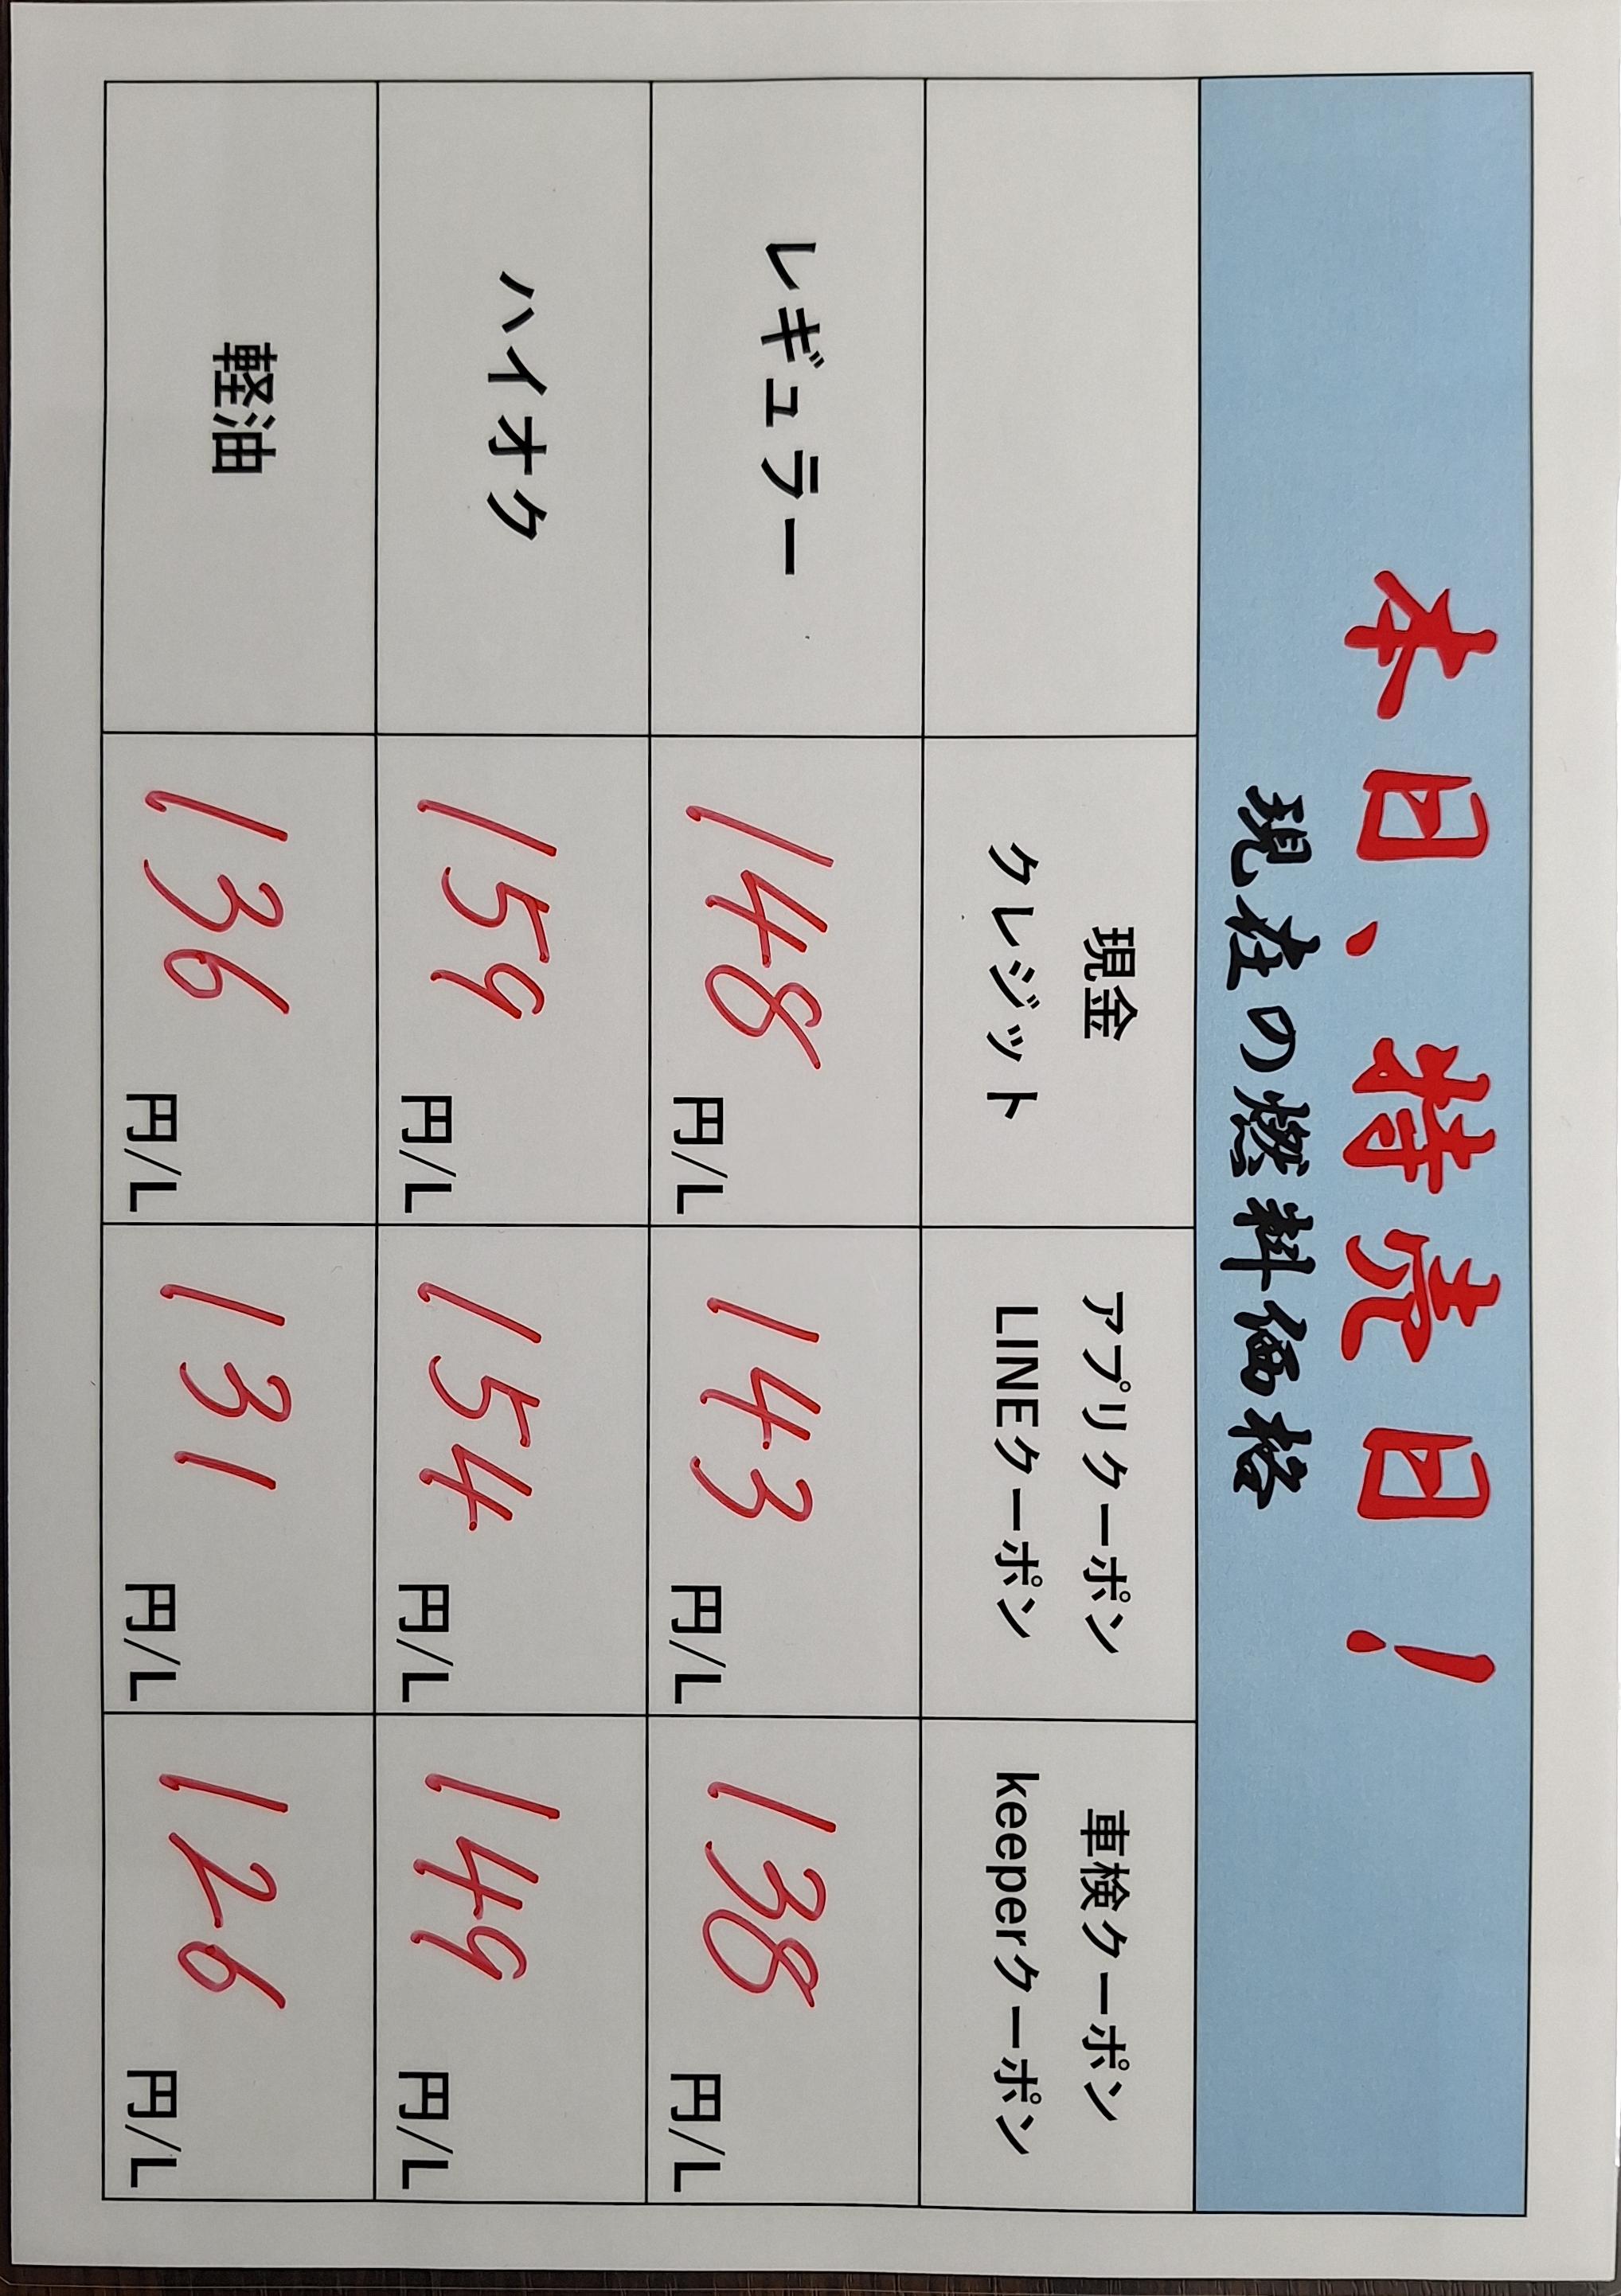 本日、特売日!
現在の燃料価格
現金
クレジット
アプリクーポン
LINEクーポン
車検クーポン
keeperクーポン
レギュラー
148 円/L
143 円/L
138 円/L
ハイオク
159 円/L
154 円/L
149 円/L
軽油
136 円/L
131 円/L
126 円/L